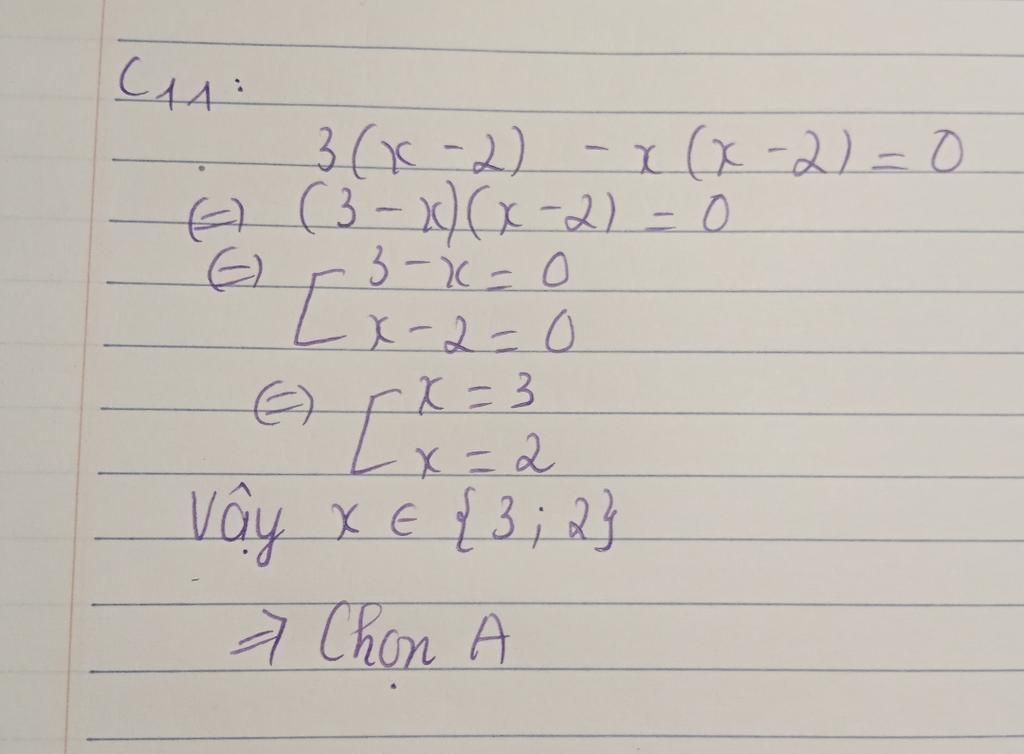 C11:
3(x-2) - x(x-2) = 0
(=) (3-x)(x-2) = 0
(=) [ 3-x = 0
x-2 = 0
(=) [ x = 3
x = 2
Vậy x ∈ {3; 2}
=> Chọn A